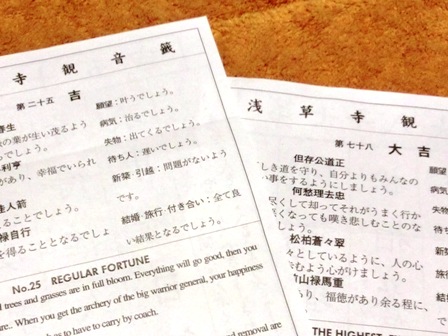 寺 観 音 籤
第 二 十 五 吉
願望:叶うでしょう。
病気:治るでしょう。
失物:出てくるでしょう。
待ち人:遅いでしょう。
新築・引越:問題がないよう
です。
結婚・旅行・付き合い:全て良
い結果となるでしょう。
の葉が生い茂るよう
でしょう。
利亨
があり、幸福でいられ
す。
佳人箭
ることでしょう。
禄自行
を得ることとなるでしょ
う。
No.25 REGULAR FORTUNE
l trees and grasses are in full bloom. Everything will go good, then you
are.. When you get the archery of the big warrior general, your happiness
to have to carry by coach.
and removal are
浅 草 寺 観
第 七 十 八 大 吉
但存公道正
しき道を守り、自分よりもみんなの
い事をするようにしましょう。
何愁理去忠
尽くして却ってそれがうまく行か
悪くなっても嘆き悲しむことのな
しょう。
松柏蒼々翠
々としているように、人の心
心がけましょう。
山禄馬重
あり、福徳があり余る程に、
THE HIGHEST